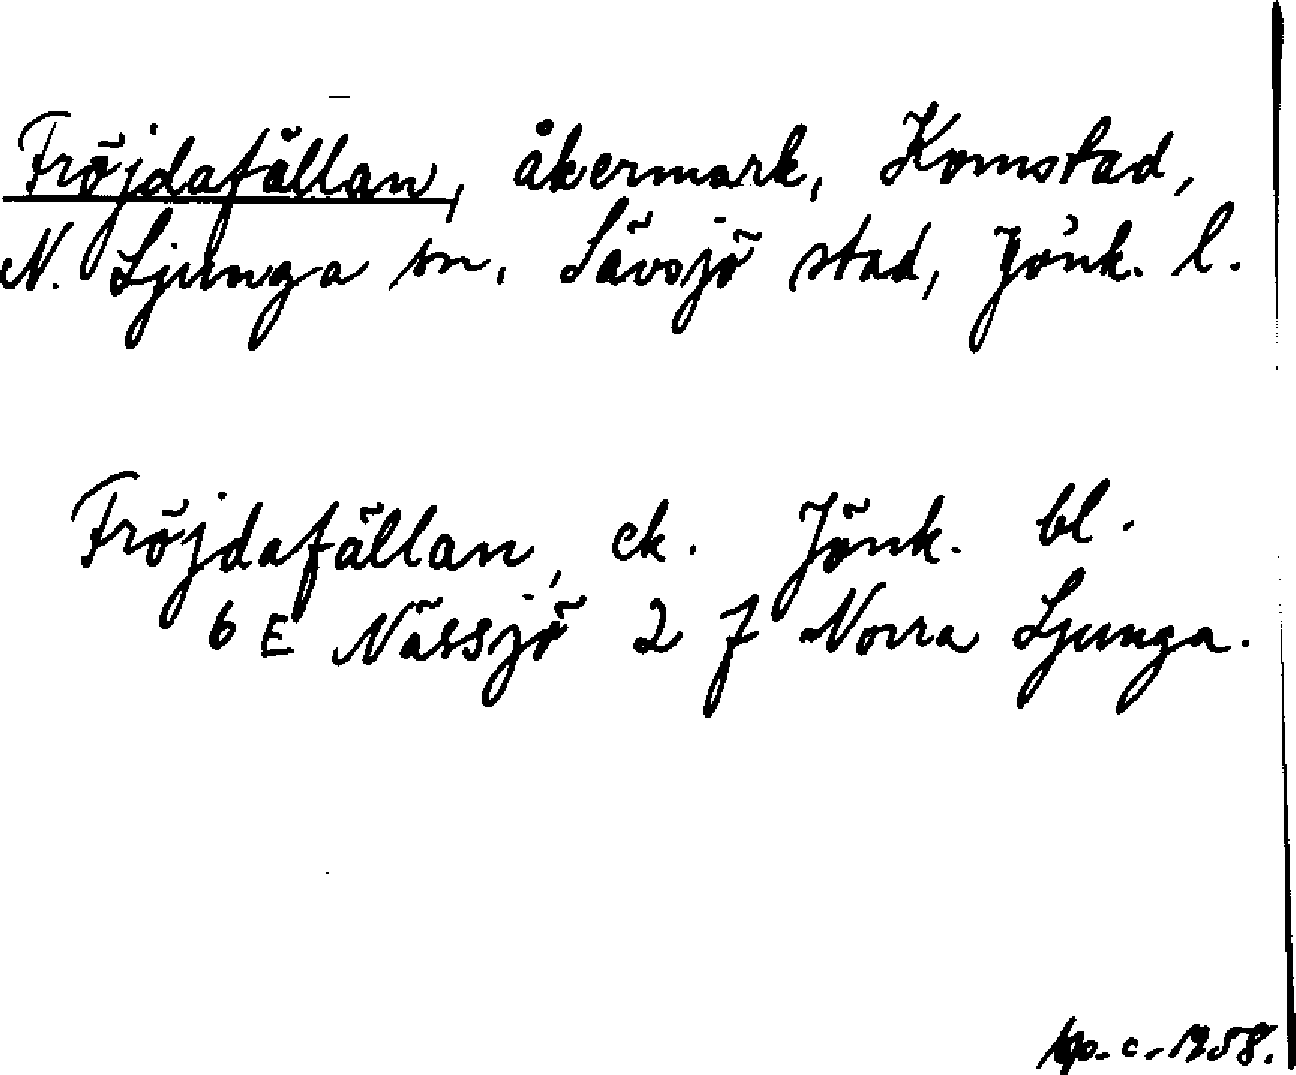 Fröjdafällan, åkermark, Komstad,
N. Ljunga sn. Sävsjö stad, Jönk. l.
Fröjdafällan, ek. Jönk. bl.
6 E Nässjö 2 f Norra Ljunga.
c. 1958.